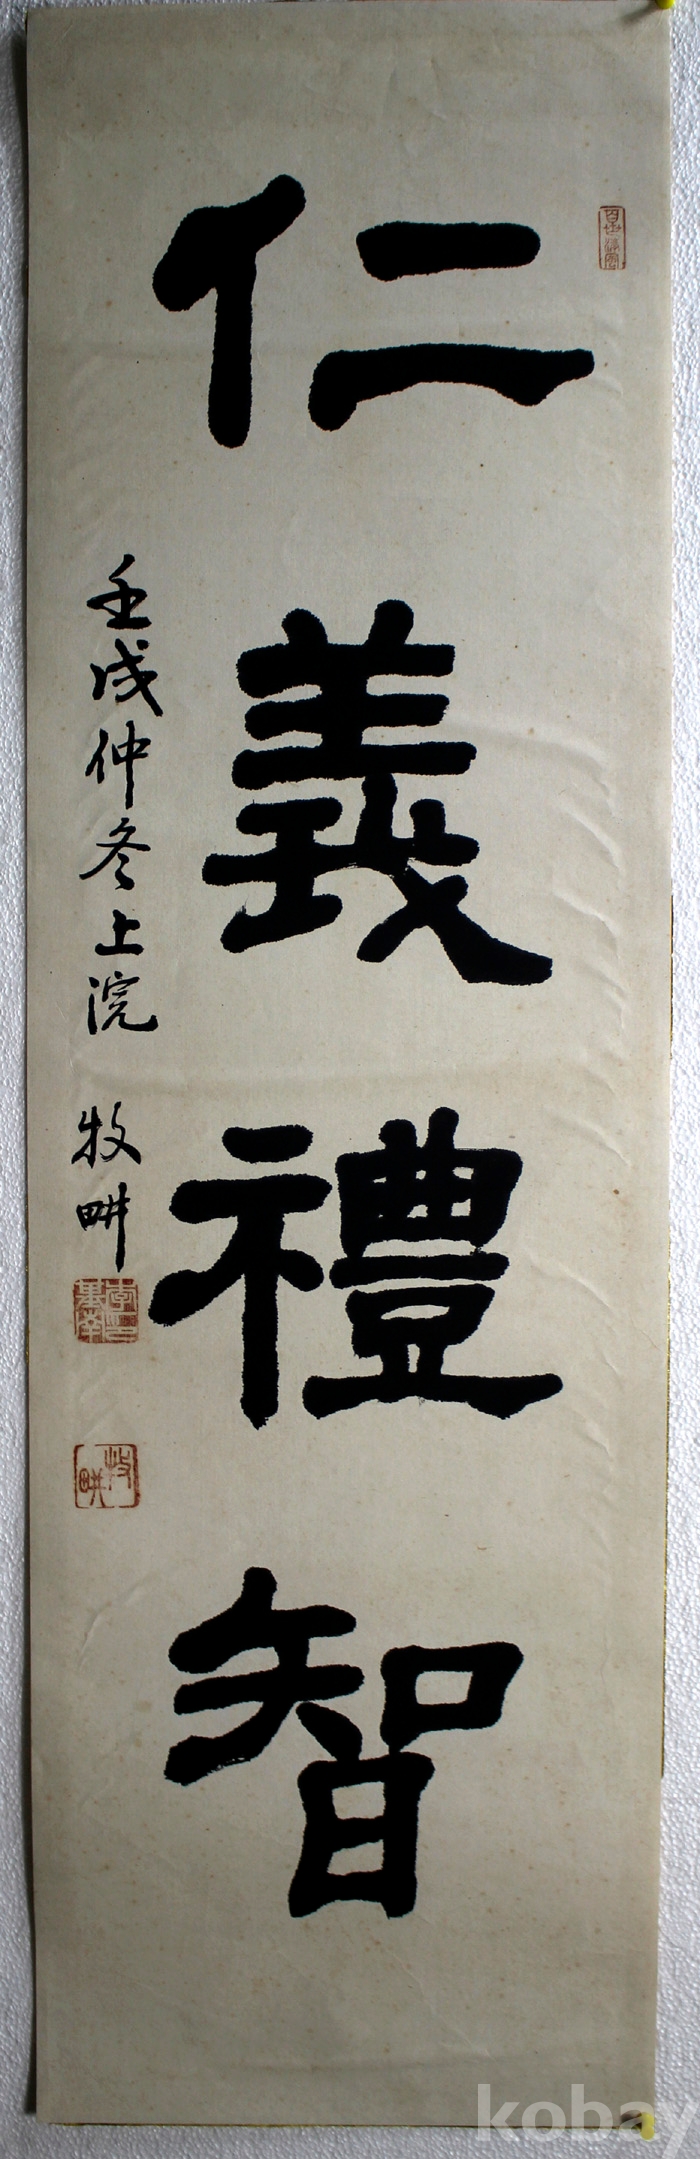 仁義禮智
壬戌仲冬上浣 牧畊
牧畊
kobay